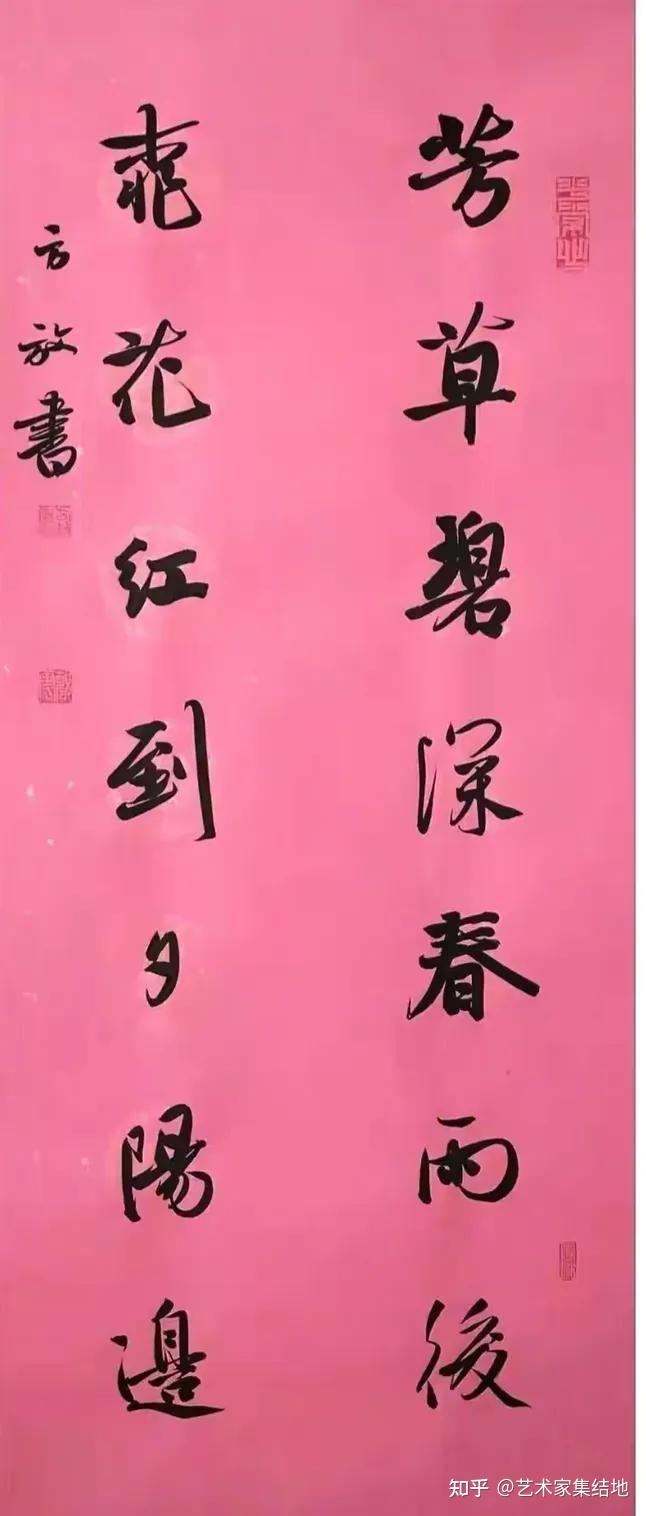 芳草碧深春雨後
桃花紅到夕陽邊
方放書
知乎 @艺术家集结地